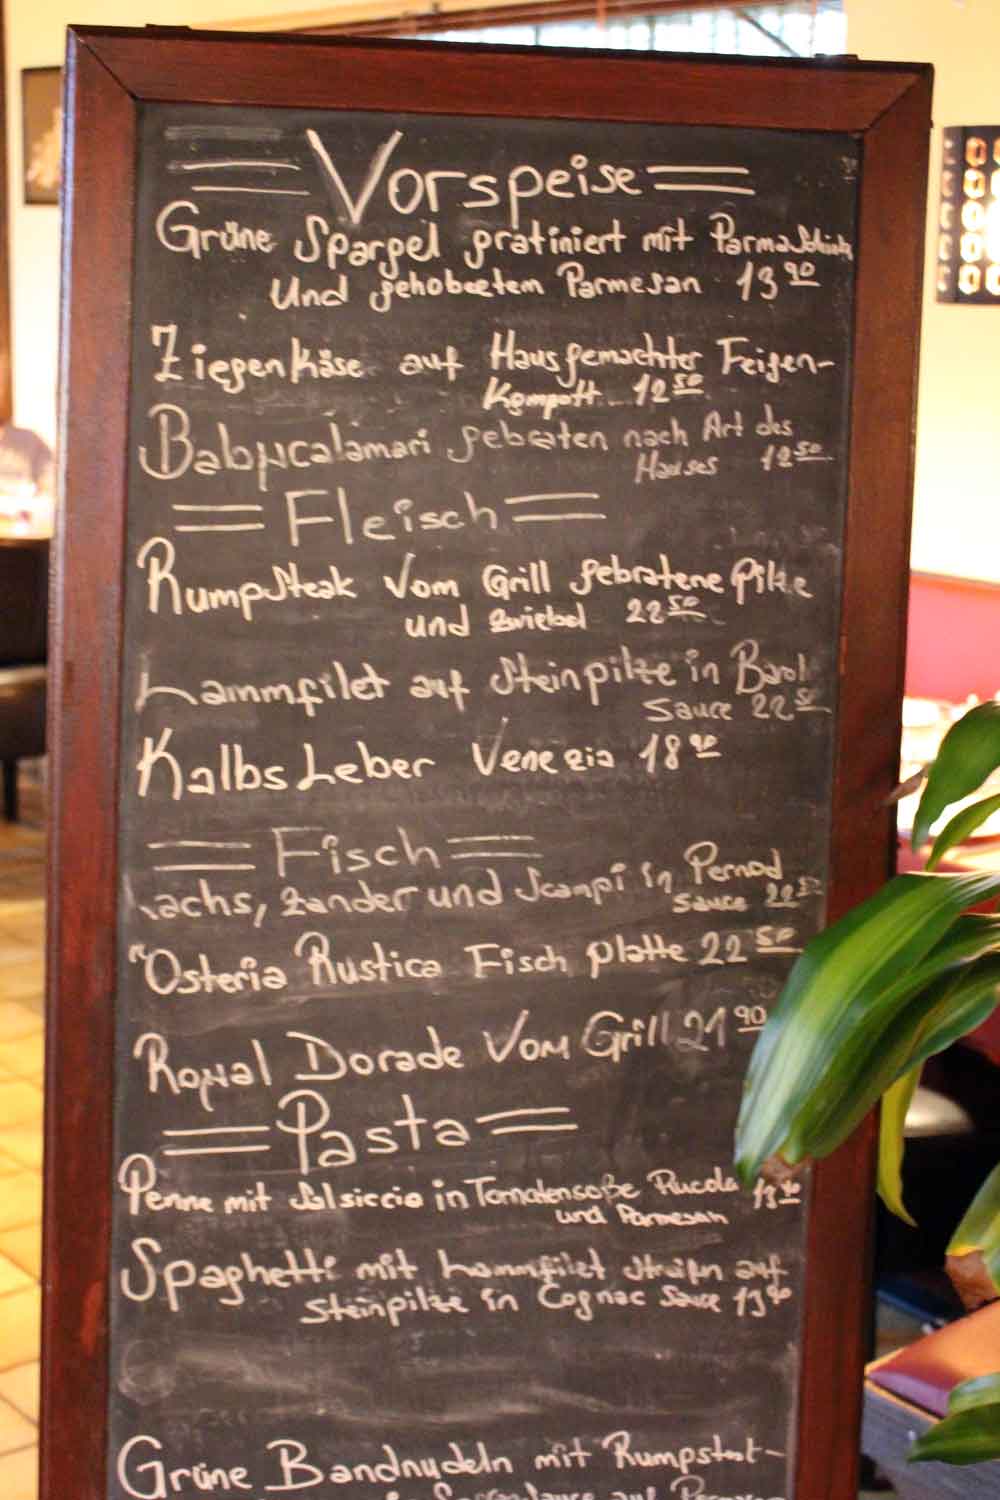 Vorspeise
Grüne Spargel gratiniert mit Parma Schink
Und gehobeetem Parmesan 13 90
Ziegenkäse auf Hausgemachter Feigen-
Kompott 12 50
Babycalamari gebraten nach Art des
Hauses 12 50
Fleisch
Rumpsteak Vom Grill gebratene Pilze
und zwiebel 22 50
Lammfilet auf Steinpilze in Barol
Sauce 22 50
KalbsLeber Venezia 18 90
Fisch
Lachs, Zander und Scampi in Pernod
Sauce 22 50
"Osteria Rustica Fisch platte 22 50
Royal Dorade Vom Grill 21 90
Pasta
Penne mit Salsiccia in Tomatensoße Rucola 13 90
und Parmesan
Spaghetti mit Lammfilet streifn auf
Steinpilze in Cognac Sauce 13 90
Grüne Bandnudeln mit Rumpsteat-
auf Parmesan